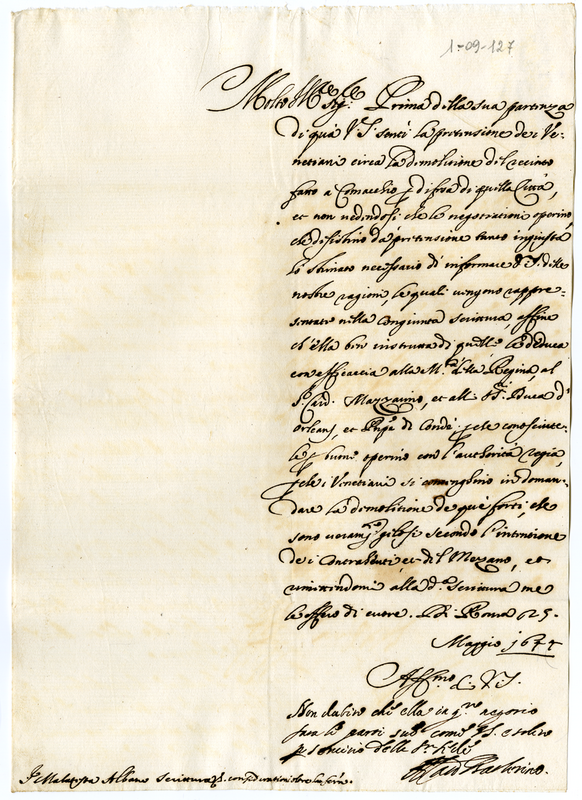 1-09-127
Molto Ill.re Sig.re Prima della sua partenza
di quà V.S. sentì la pretensione de i Ve-
netiani circa la demolitione del recinto
fatto a Comacchio p difesa di quella Città,
et non vedendosi che le negotiationi operino,
che desistino da pretensione tanto ingiusta
hò stimato necessario di informare V.S. delle
nostre ragioni, le quali vengono rappre-
sentate nella congiunta scrittura, affine
ch'ella ben instrutta di quelle le deduca
con efficacia alla M.tà della Regina, al
S.r Card. Mazzarino, et alli SS.ri Duca d'
Orleans, et Prnpe di Condè, p che conosciute-
le p buone operino con l'authorità regia,
p che i Venetiani si contenghino in doman-
dare la demolitione de que forti, che
sono veram.te gelosi secondo l'intentione
de i Contrahenti, et del Mezzano, et
rimettendomi alla d.a scrittura me
le offero di cuore. Di Roma 25.
Maggio 1644
Aff.mo di V.S.
Non dubito che ella in q.to negotio
farà le parti sue come è solito
p servitio della
S.r Malatesta Albano scrittura